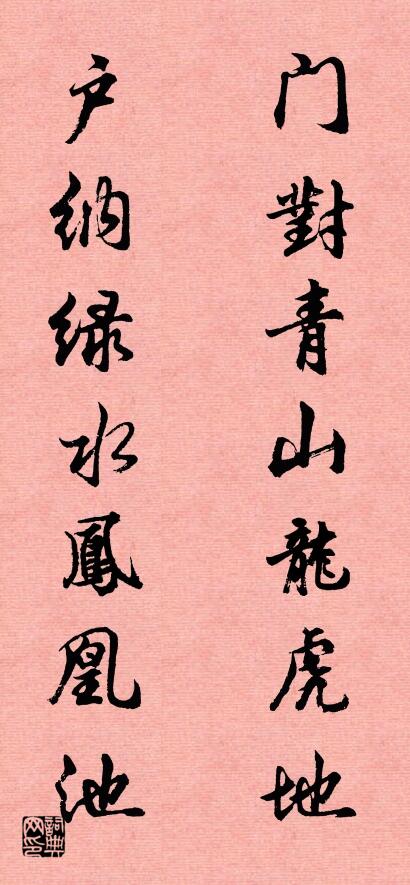 门對青山龍虎地
户纳绿水鳳凰池
詞典网印